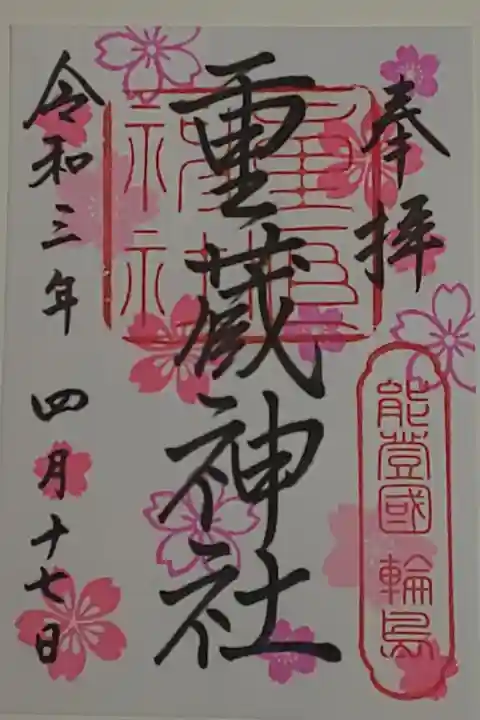 奉拝
能登國 輪島
重蔵神社
令和三年 四月十七日